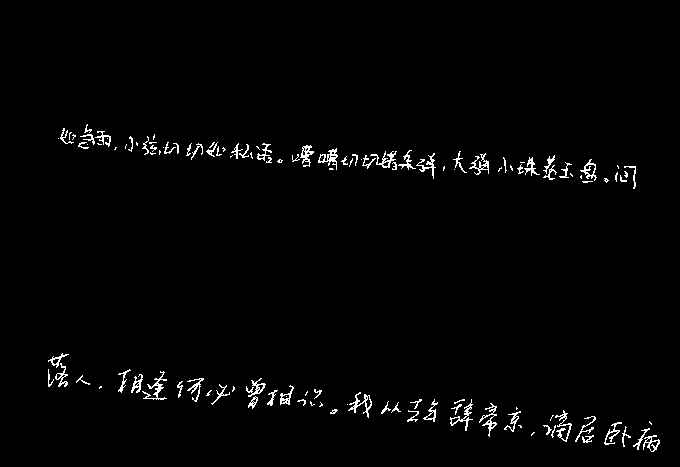 如急雨，小弦切切如私语。嘈嘈切切错杂弹，大珠小珠落玉盘。间
落人，相逢何必曾相识。我从去年辞帝京，谪居卧病